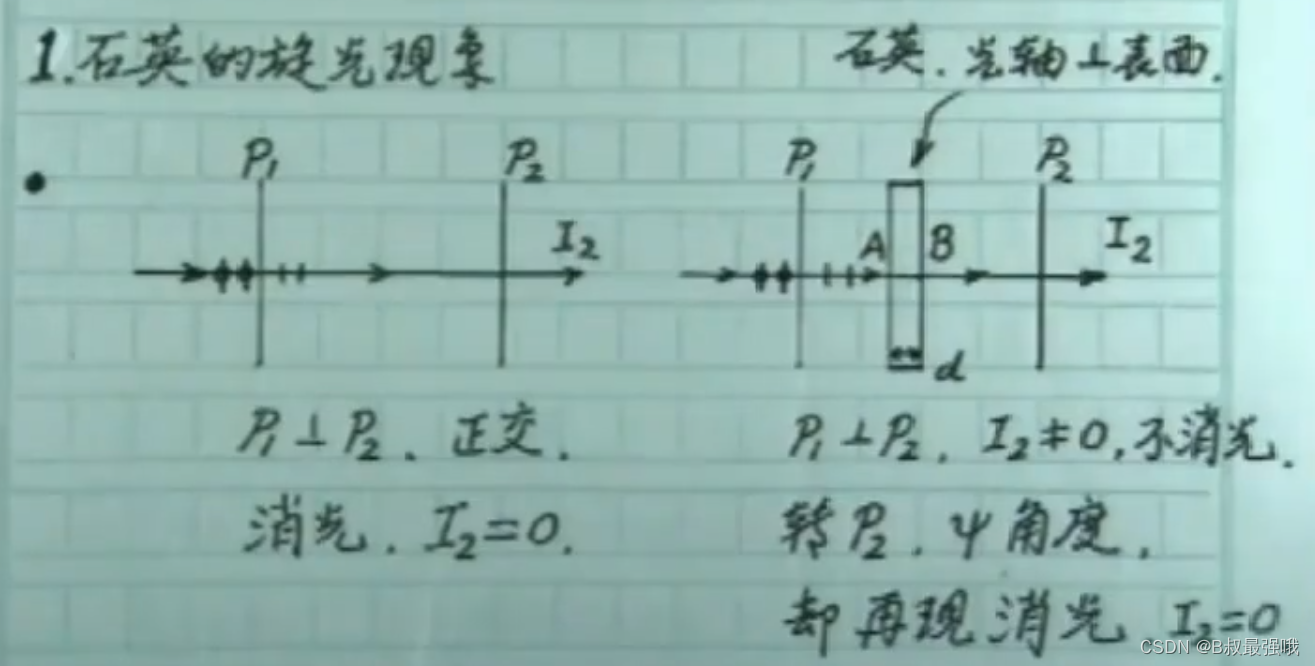 1.石英的旋光现象
石英.光轴⊥表面.
P₁ P₂
I₂
P₁⊥P₂.正交.
消光.I₂=0.
P₁ P₂
A B I₂
d
P₁⊥P₂.I₂≠0,不消光.
转P₂.ψ角度,
却再现消光 I₂=0
CSDN @B叔最强哦